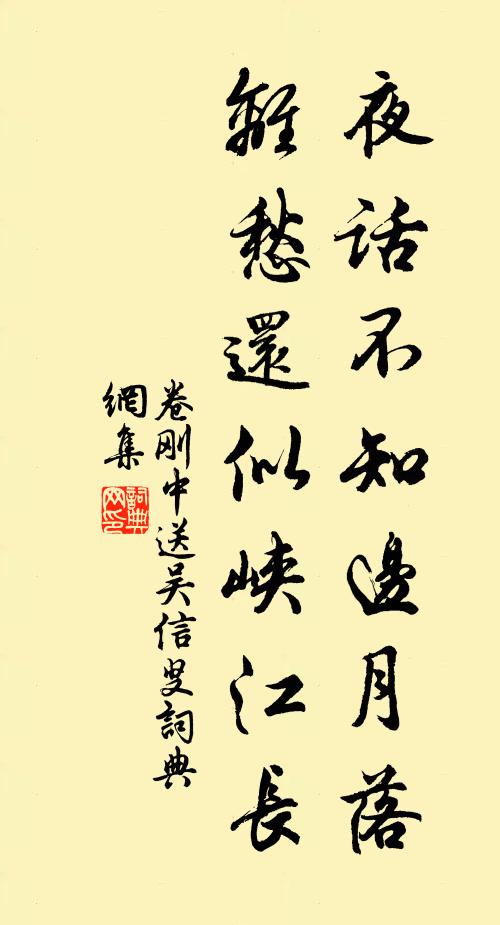 夜话不知邊月落
離愁還似峡江長
卷刚中送吴信叟詞典
網集
詞典
网印